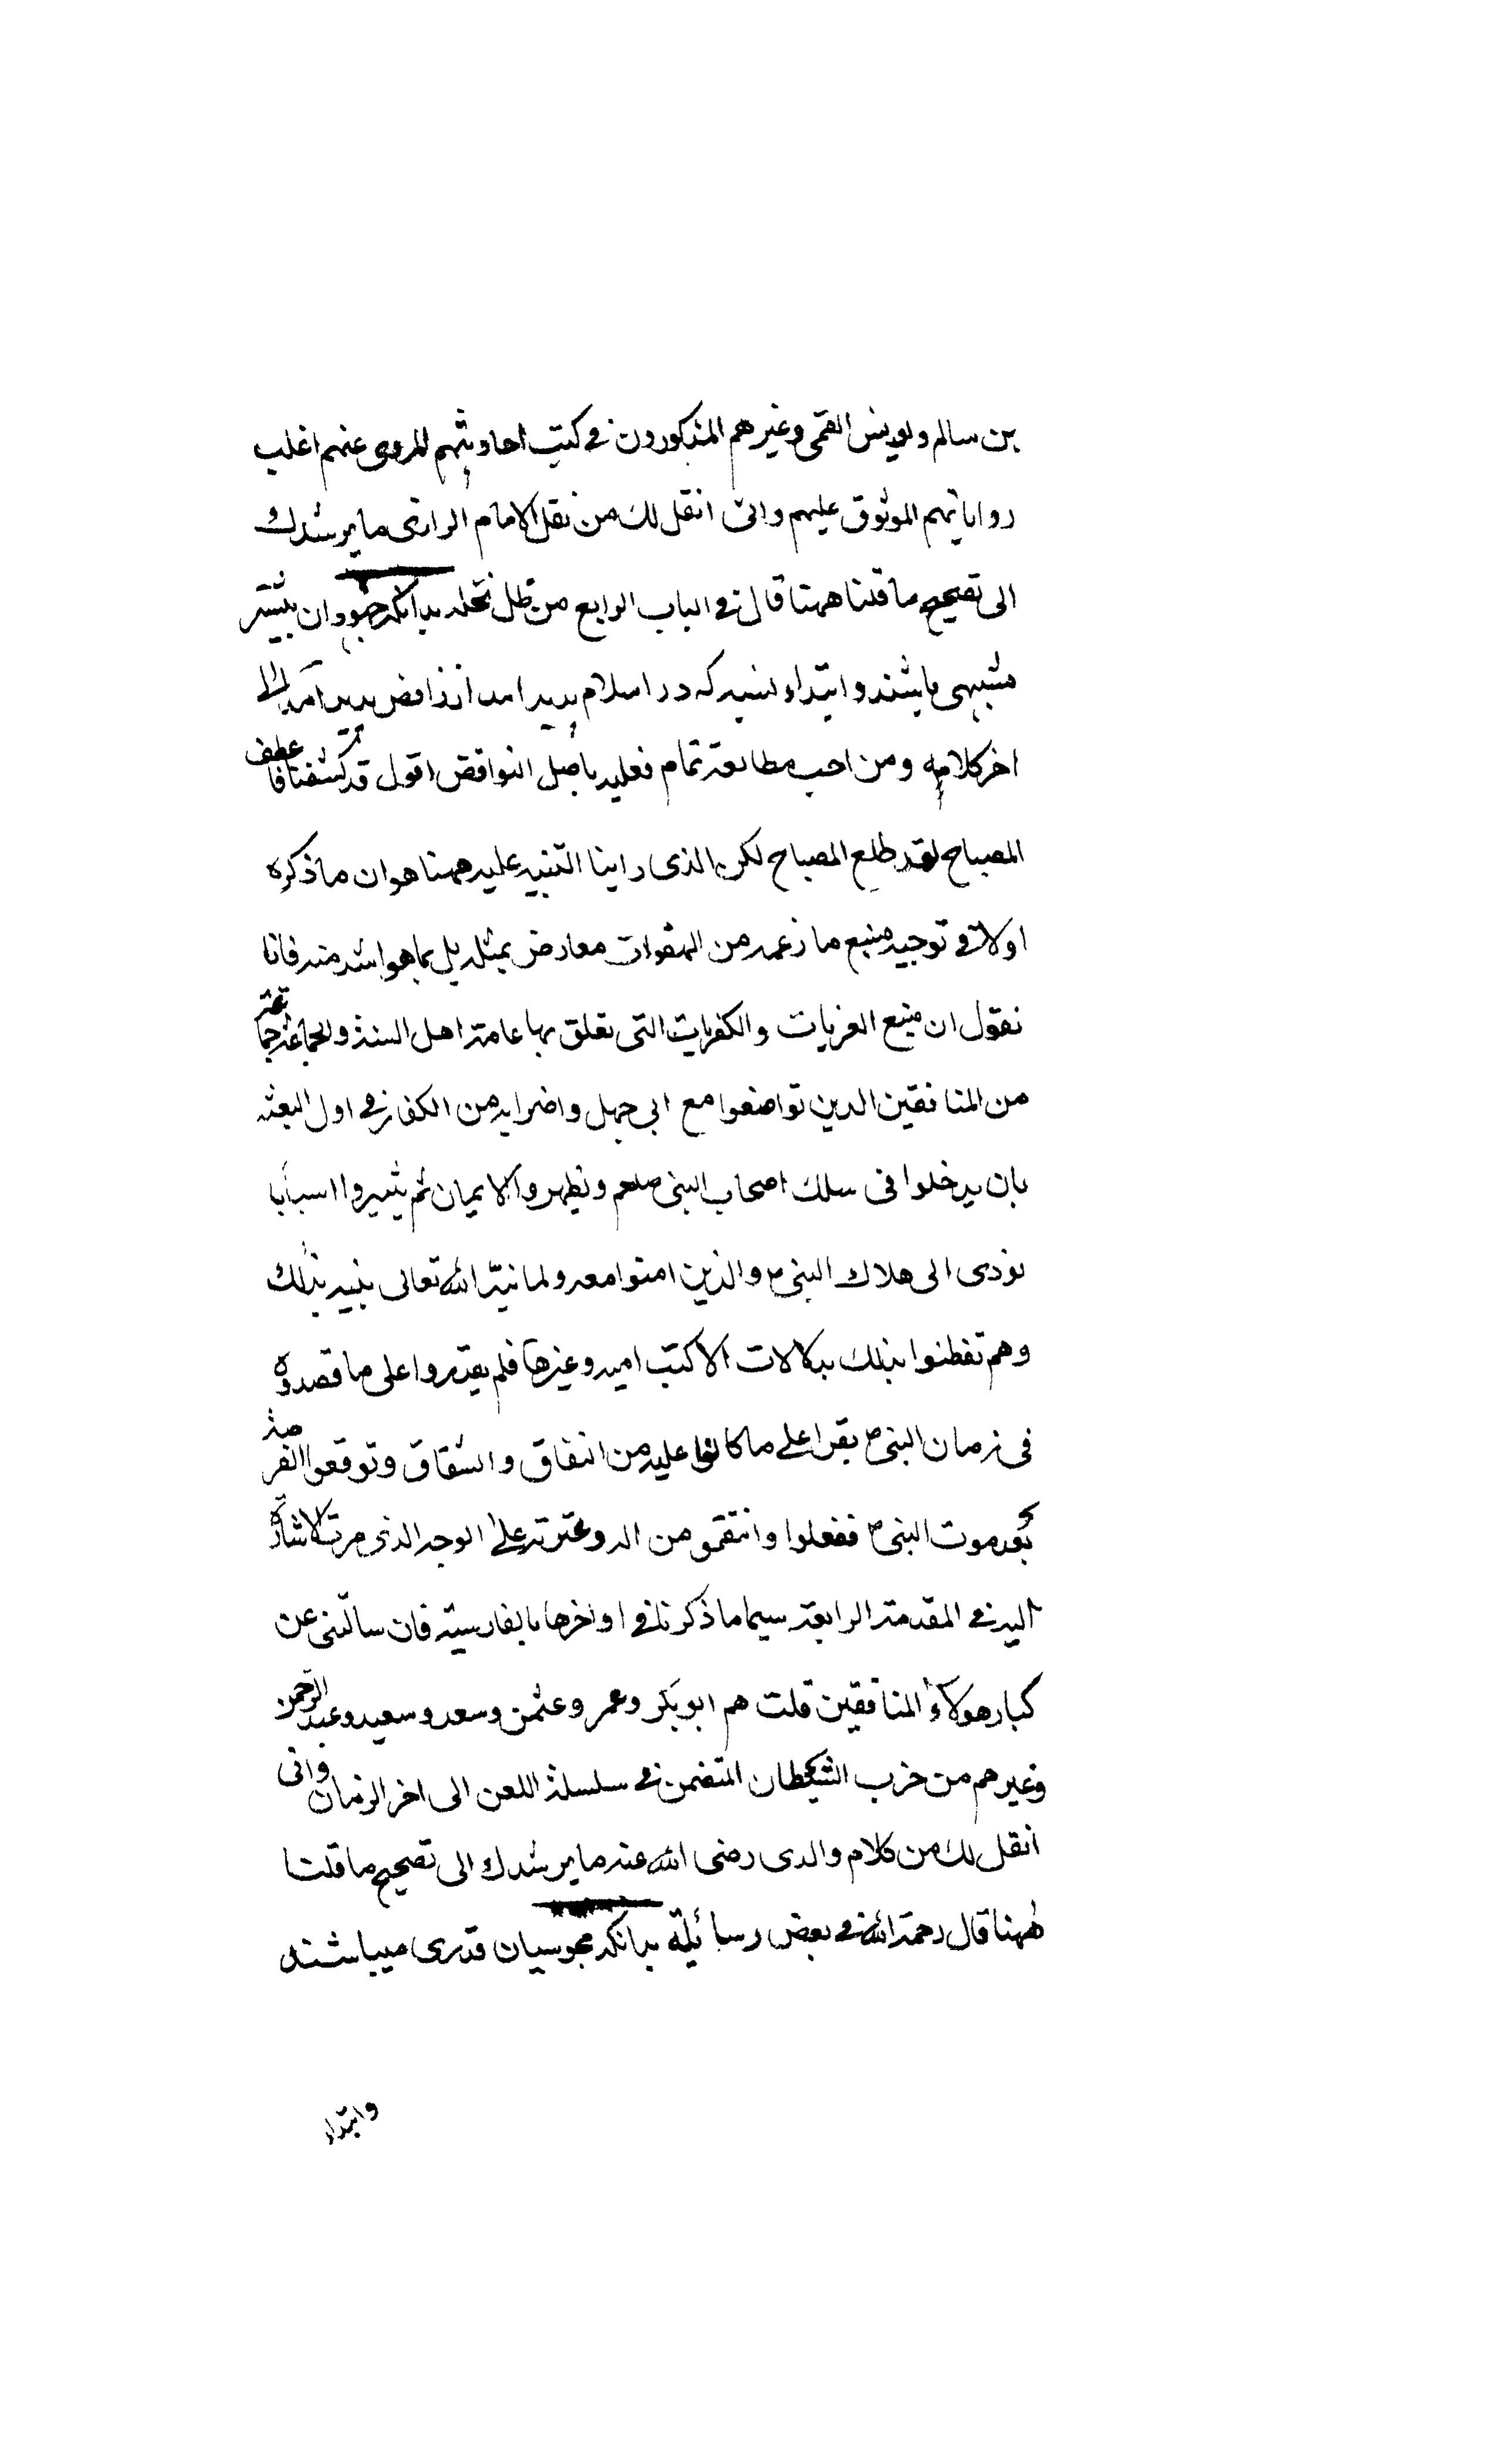 بن سالم ويونس القمى وغيرهم المذكورون فى كتب احاديثهم المروى عنهم اغلب
رواياتهم الموثوق عليهم وانى انقل لك من نقل الامام الرازى ما يرشدك
الى تصحيح ما قلنا ههنا قال فى الباب الرابع من ملل نحله بدانكه جهودان بيشتر
مشبهى باشند وابتداء تشبيه كه در اسلام پديد امد از روافض پديد امد الى
اخر كلامه ومن احب مطالعة تمام فعليه باصل النواقض اقول قد كشفنا عطف
المصباح لقد طلع المصباح لكن الذى راينا التنبيه عليه ههنا هو ان ما ذكره
اولا فى توجيه منبع ما زعمه من الهفوات معارض بمثله بل بما هو اشد منه فانا
نقول ان منبع الفريات والكفريات التى تعلق بها عامة اهل السنة والجماعة جماعة
من المنافقين الذين تواضعوا مع ابى جهل واضرابه من الكفار فى اول البعثة
بان يدخلوا فى سلك اصحاب النبى صلعم ونظهروا الايمان ثم يثيروا اسبابا
تودى الى هلاك النبى ص والذين امنوا معه ولما نبه الله تعالى نبيه بذلك
وهم تفطنوا بذلك بدلالات الاكتب اميه وغيرها فلم يقدروا على ما قصدوه
فى زمان النبى ص بقوا على ما كانوا عليه من النفاق والشقاق وتوقعوا الفرصة
بعد موت النبى ص ففعلوا وانتقموا من اله وعترته على الوجه الذى مرت الاشارة
اليه فى المقدمة الرابعة سيما ما ذكرنا فى اواخرها بالفارسية فان سالتنى عن
كبار هولاء المنافقين قلت هم ابو بكر وعمر وعثمن وسعد وسعيد وعبد الرحمن
وغيرهم من حزب الشيطان المتضمن فى سلسلة اللعن الى اخر الزمان وانى
انقل لك من كلام والدى رضى الله عنه ما يرشدك الى تصحيح ما قلنا
ههنا قال رحمة الله فى بعض رسائله بدانكه مجوسيان قدرى ميباشند
وابتداء